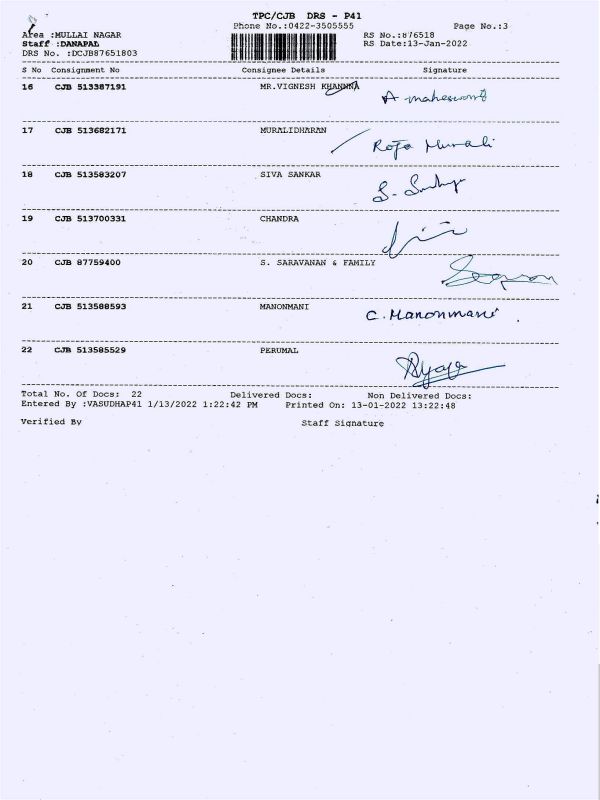 TPC/CJB DRS - P41
Phone No.:0422-3505555 Page No.:3
Area :MULLAI NAGAR RS No.:876518
Staff :DANAPAL RS Date:13-Jan-2022
DRS No. :DCJB87651803
S No Consignment No Consignee Details Signature
16 CJB 513387191 MR.VIGNESH KHANNNA
A maheswari
17 CJB 513682171 MURALIDHARAN
Roja Murali
18 CJB 513583207 SIVA SANKAR
19 CJB 513700331 CHANDRA
20 CJB 87759400 S. SARAVANAN & FAMILY
21 CJB 513588593 MANONMANI
C. Manonmani
22 CJB 513585529 PERUMAL
Total No. Of Docs: 22 Delivered Docs: Non Delivered Docs:
Entered By :VASUDHAP41 1/13/2022 1:22:42 PM Printed On: 13-01-2022 13:22:48
Verified By Staff Signature